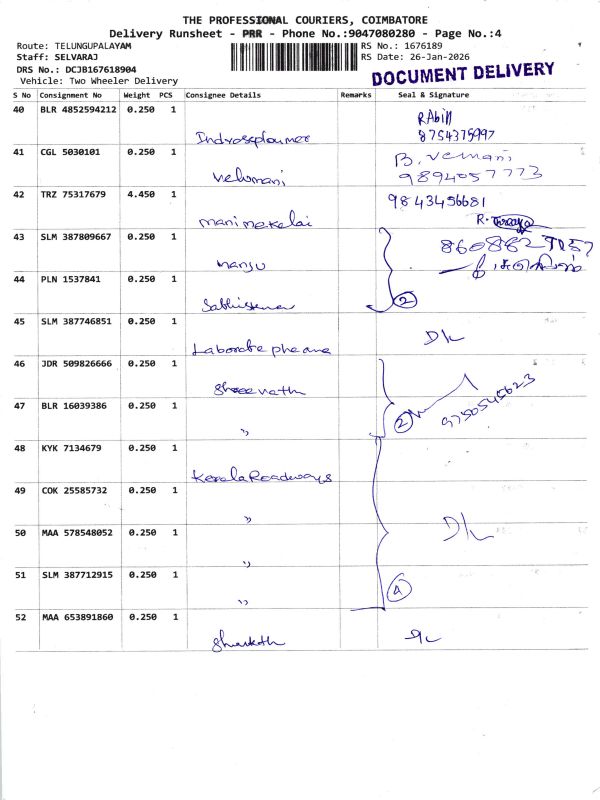 THE PROFESSIONAL COURIERS, COIMBATORE
Delivery Runsheet - PRR - Phone No.:9047080280 - Page No.:4
Route: TELUNGUPALAYAM RS No.: 1676189
Staff: SELVARAJ RS Date: 26-Jan-2026
DRS No.: DCJB167618904
Vehicle: Two Wheeler Delivery
DOCUMENT DELIVERY
S No Consignment No Weight PCS Consignee Details Remarks Seal & Signature
40 BLR 4852594212 0.250 1
8754375997
41 CGL 5030101 0.250 1 B. Velmani
Velumani 9894057773
42 TRZ 75317679 4.450 1 9843456681
manimekalai R.
43 SLM 387809667 0.250 1
manju
44 PLN 1537841 0.250 1
2
45 SLM 387746851 0.250 1
46 JDR 509826666 0.250 1
Shreenath 9750545623
47 BLR 16039386 0.250 1 2
"
48 KYK 7134679 0.250 1
Kerala Roadways
49 COK 25585732 0.250 1
"
50 MAA 578548052 0.250 1
"
51 SLM 387712915 0.250 1
" 4
52 MAA 653891860 0.250 1